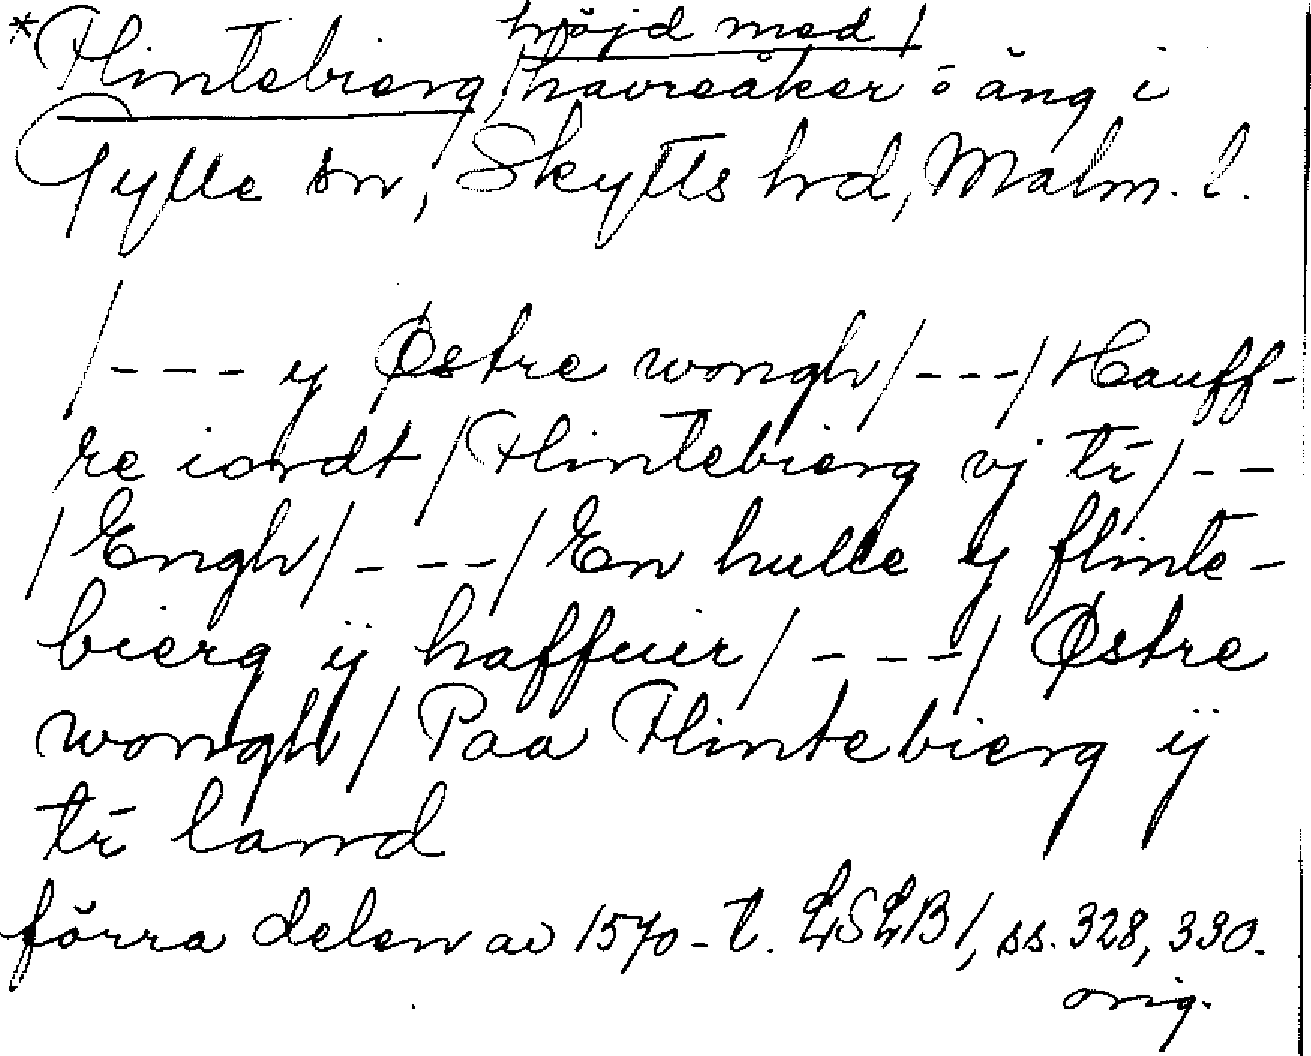 höjd med/
*Flintebierg/havreåker o äng i
Gylle sn, Skytts hd, Malm. l.
/--- y Østre wongh/---/Hauff-
re iordt/Flintebierg vj tr/--
/Engh/---/En hulle y flinte-
bierg ij haffuer/---/Østre
wongh/Paa Flintebierg ij
tr land
förra delen av 1570-t. LSLB1, ss. 328, 330.
orig.